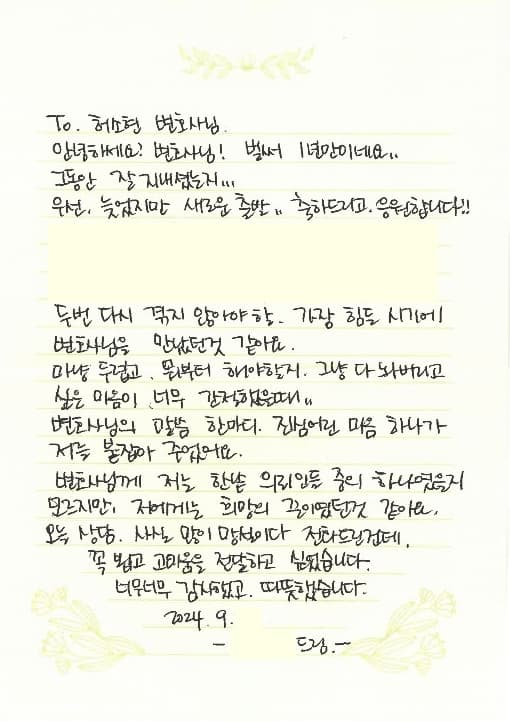 To. 허소현 변호사님.
안녕하세요? 변호사님! 벌써 1년만이네요..
그동안 잘 지내셨는지...
우선, 늦었지만 새로운 출발.. 축하드리고, 응원합니다!!
두번 다시 겪지 않아야 할, 가장 힘든 시기에
변호사님을 만났던것 같아요.
마냥 두렵고, 뭘부터 해야할지, 그냥 다 놔버리고
싶은 마음이 너무 간절했을때..
변호사님의 말씀 한마디, 진심어린 마음 하나가
저를 붙잡아 주었어요.
변호사님께 저는 한낱 의뢰인들 중의 하나였을지
모르지만, 저에게는 희망의 끈이였던것 같아요.
오늘 상담, 사실 많이 망설이다 전화드린건데,
꼭 뵙고 고마움을 전달하고 싶었습니다.
너무너무 감사했고, 따뜻했습니다.
2024. 9.
- 드림.~